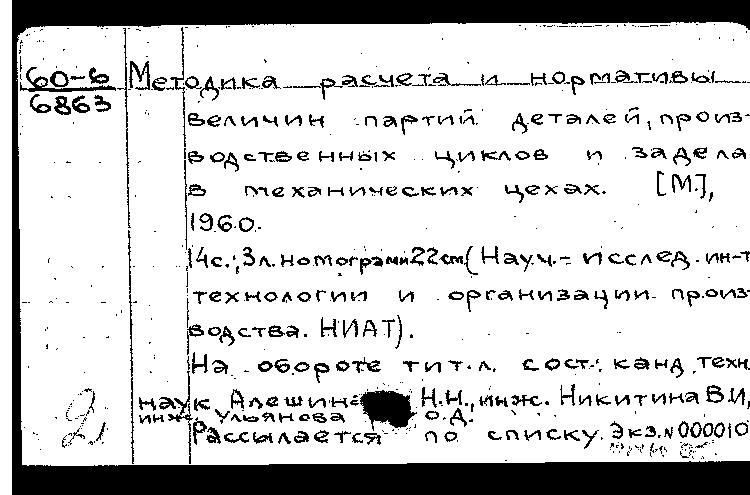 60-6 Методика расчета и нормативы
6863
величин партий деталей, произ-
водственных циклов и задела
в механических цехах. [М.],
1960.
14с.; 3л. номограмм 22см (Науч.-исслед. ин-т
технологии и организации произ-
водства. НИАТ).
На обороте тит. л. сост.: канд. техн.
наук Алешина Н.Н., инж. Никитина В.И.,
инж. Ульянова О.Д.
Рассылается по списку. Экз. N 000010
2л